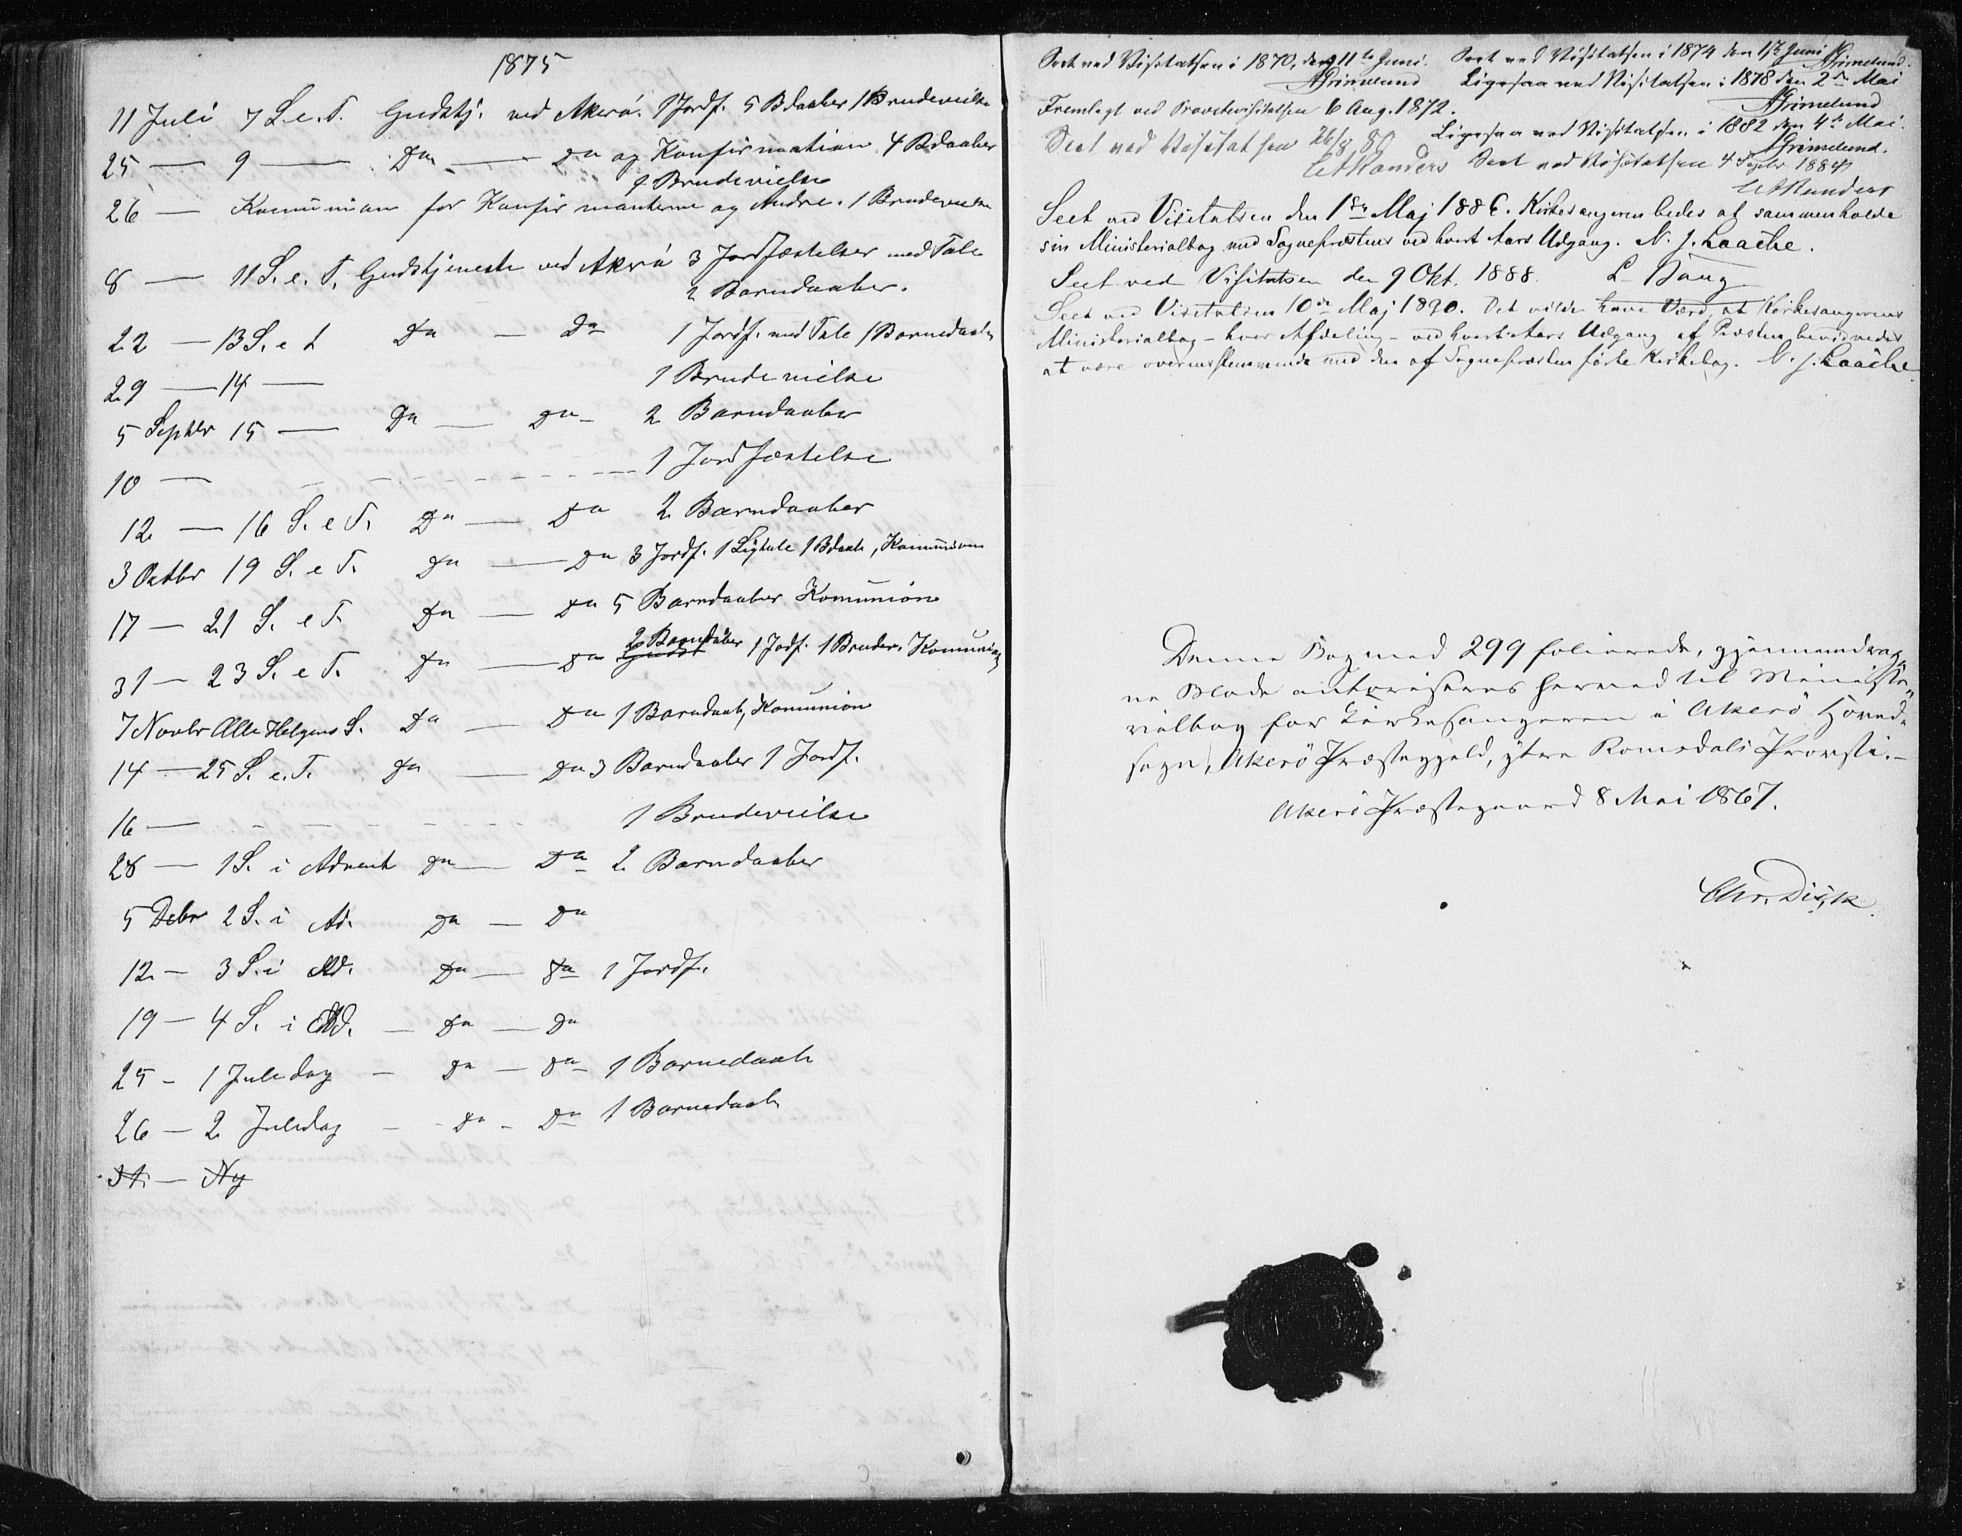 1875
11 Juli 7 S. e. T. Gudstj. ved Akerö. 1 Jordf. 5 Bdaaber 1 Brudevielse
25 — 9 — Do — Do og Konfirmation 4 Bdaaber
1 Brudevielse
26 — Kommunion for Konfirmanterne og Andre. 1 Brudevielse
8 — 11 S. e. T. Gudstjeneste ved Akerö 3 Jordfæstelser med Tale
2 Barndaaber.
22 — 13 S. e t Do — Do 1 Jordf. med Tale 1 Barnedaab
29 — 14 — 1 Brudevielse
5 Septbr 15 — Do — Do — 2 Barndaaber
10 — 1 Jordfæstelse
12 — 16 S. e T. Do — Do 2 Barndaaber
3 Octbr 19 S. e T. Do — Do 3 Jordf. 1 Ligtale 1 Bdaab, Kommunion
17 — 21 S. e T. Do — Do 5 Barndaaber Kommunion
31 — 23 S. e T. Do — Do 2 Barndåber 1 Jodf. 1 Brudev. Kommunion
7 Novbr Alle Helgens S. Do — Do 1 Barndaab, Kommunion
14 — 25 S. e. T. Do — Do 3 Barndaaber 1 Jordf.
16 — 1 Brudevielse
28 — 1 S. i Advent Do — Do 2 Barndaaber
5 Debr 2 S. i Ad. Do — Do
12 — 3 S. i Ad. Do — Do 1 Jordf.
19 — 4 S. i Ad. — Do — Do
25 - 1 Juledag - Do — Do 1 Barnedaab
26 — 2 Juledag - Do - Do 1 Barnedaab
31. — Ny
Seet ved Visitatsen i 1870, den 11te Juni.
AGrimelund
Seet ved Visitatsen i 1874 den 13 Juni
AGrimelund.
Ligesaa ved Visitatsen i 1878 den 2den Mai
AGrimelund
Fremlagt ved Provstevisitatsen 6 Aug. 1872.
Ligesaa ved Visitatsen i 1882 den 4de Mai.
AGrimelund.
Seet ved Visitatsen 26/8 80
Seet ved Visitatsen 4 Septbr 1884
Seet ved Visitatsen den 1ste Maj 1886. Kirkesangeren bedes at sammenholde
sin Ministerialbog med Sognepræstens ved hvert Aars Udgang. N. J. Laache.
Seet ved Visitatsen den 9 Okt. 1888. L. Daae
Seet ved Visitatsen 10de Maj 1890. Det vilde have Værd, at Kirkesangerens
Ministerialbog - hver Afdeling - ved hvert Aars Udgang af Præsten bevidnedes
at være overensstemmende med den af Sognepræsten førte Kirkebog. N. J. Laache
Denne Bog med 299 folierede, gjennemdrag-
ne Blade autoriseres hermed til Ministe-
rialbog for Kirkesangeren i Akerö Hoved-
sogn, Akerö Præstegjeld, ytre Romsdals Provsti.—
Akerö Præstegaard 8 Mai 1867.